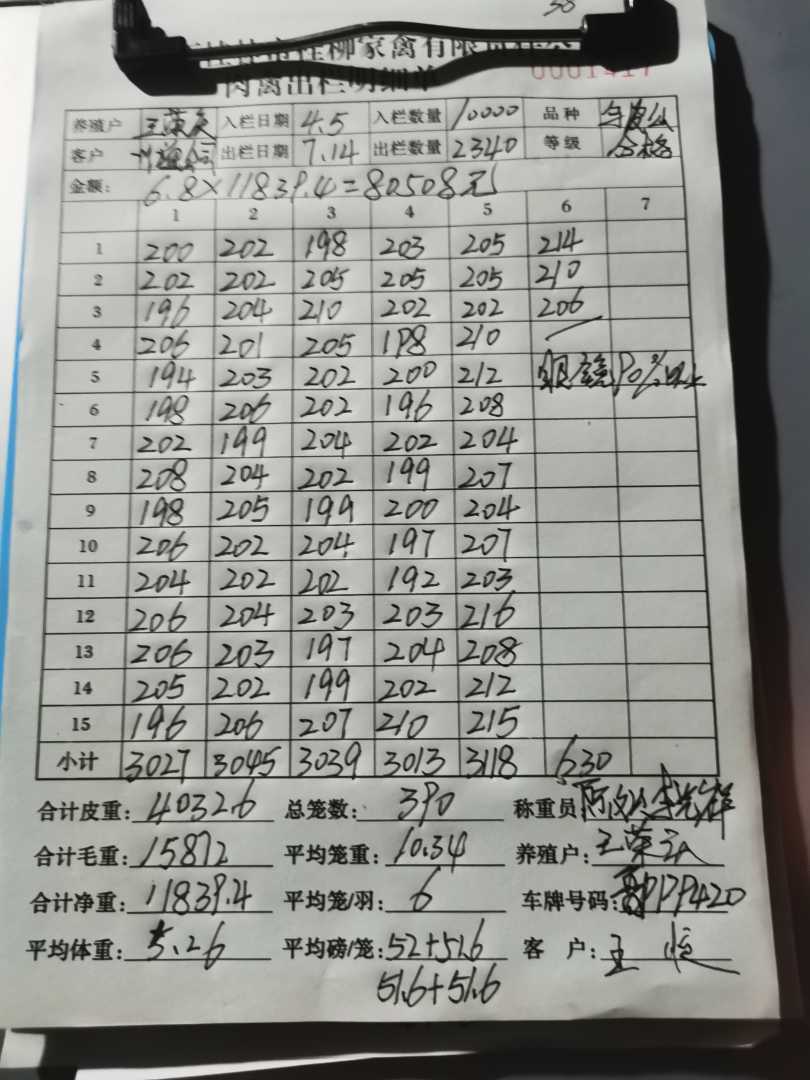 柳家禽有限责任公
肉禽出栏明细单
0001417
养殖户 王荣 入栏日期 4.5 入栏数量 10000 品种
客户 公司 出栏日期 7.14 出栏数量 2340 等级 合格
金额: 6.8×11839.4=80508元
1 2 3 4 5 6 7
1 200 202 198 203 205 214
2 202 202 205 205 205 210
3 196 204 210 202 202 206
4 206 201 205 198 210
5 194 203 202 200 212 90%以上
6 198 206 202 196 208
7 202 199 204 202 204
8 208 204 202 199 207
9 198 205 199 200 204
10 206 202 204 197 207
11 204 202 202 192 203
12 206 204 203 203 216
13 206 203 197 204 208
14 205 202 199 202 212
15 196 206 207 210 215
小计 3027 3045 3039 3013 3118 630
合计皮重: 4032.6 总笼数: 390 称重员
合计毛重: 15872 平均笼重: 10.34 养殖户: 王荣
合计净重: 11839.4 平均笼/羽: 6 车牌号码:
平均体重: 5.26 平均磅/笼: 52+51.6 客 户: 王
51.6+51.6